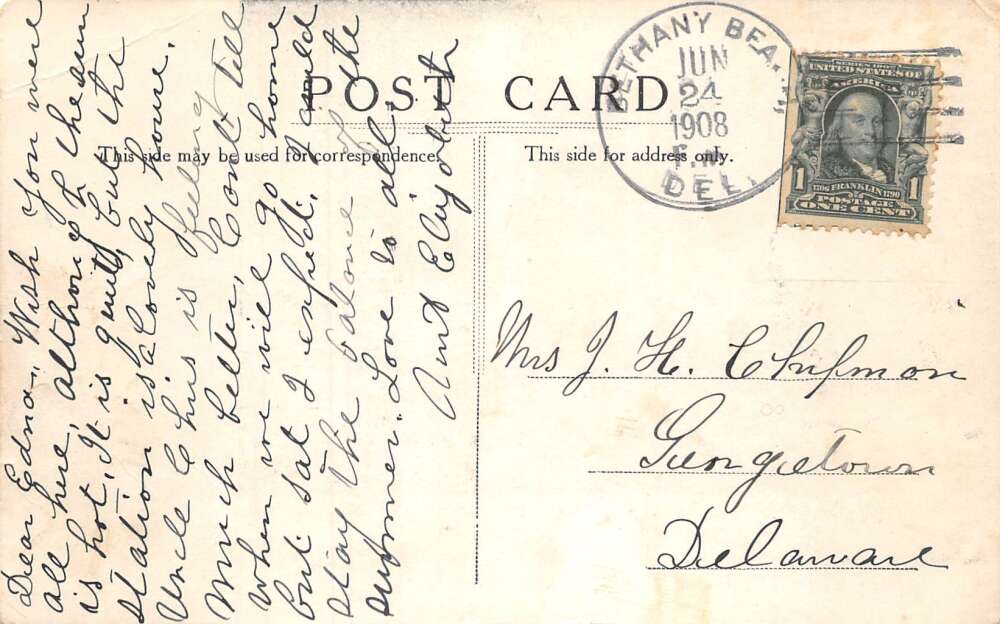 POST CARD
This side may be used for correspondence.
This side for address only.
BETHANY BEA
JUN
24
1908
DEL.
SERIES 1902
UNITED STATES OF
AMERICA
1
1706 FRANKLIN 1790
1
POSTAGE
ONE CENT
Dear Edna, Wish you were
all here, although the sun
is hot. It is quite, but the
station is a lovely house.
Uncle Chis is feeling
much better, Cant tell
when we will go home
but sat I expect. I could
stay the balance of the
summer. Love to all,
Aunt
Mrs J. H. Chipman
Georgetown
Delaware